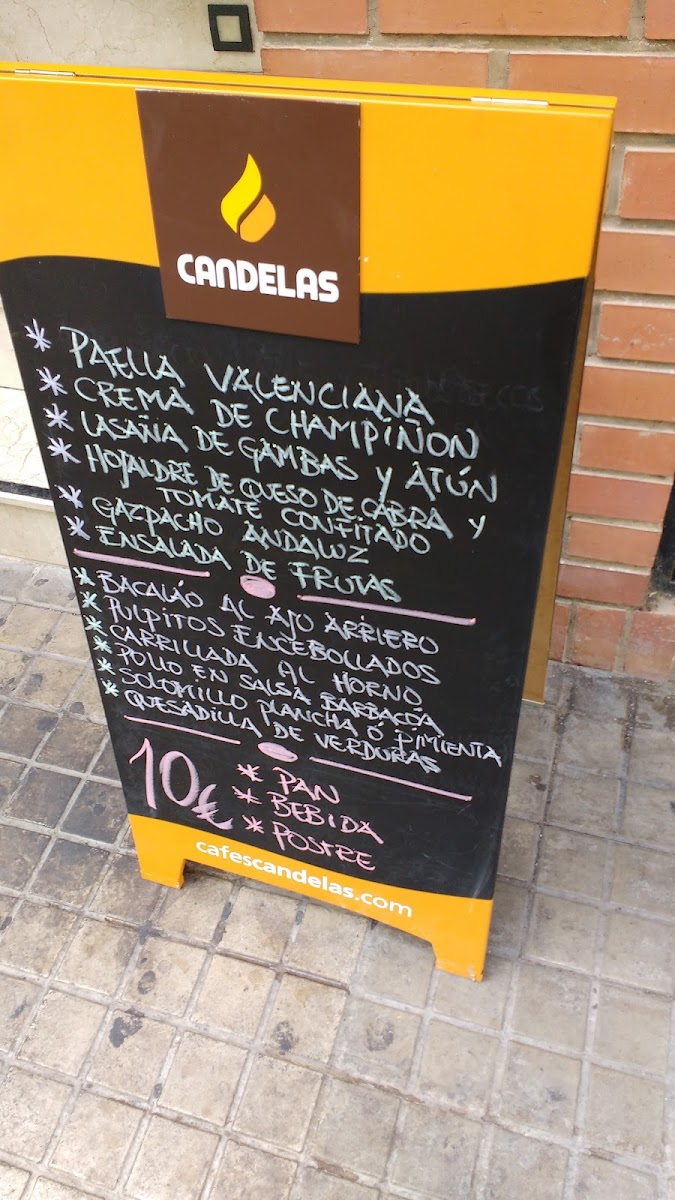 CANDELAS
* PAELLA VALENCIANA
* CREMA DE CHAMPIÑON
* LASAÑA DE GAMBAS Y ATÚN
* HOJALDRE DE QUESO DE CABRA Y
TOMATE CONFITADO
* GAZPACHO ANDALUZ
* ENSALADA DE FRUTAS
* BACALAO AL AJO ARRIERO
* PULPITOS ENCEBOLLADOS
* CARRILLADA AL HORNO
* POLLO EN SALSA BARBACOA
* SOLOMILLO PLANCHA Ó PIMIENTA
* QUESADILLA DE VERDURAS
10€
* PAN
* BEBIDA
* POSTRE
cafescandelas.com